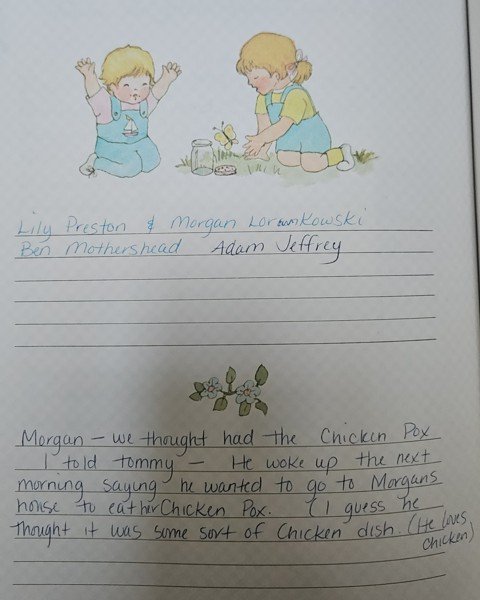 Lily Preston & Morgan Lorankowski
Ben Mothershead Adam Jeffrey
Morgan — we thought had the Chicken Pox
I told tommy — He woke up the next
morning saying he wanted to go to Morgans
house to eat her Chicken Pox. (I guess he
thought it was some sort of Chicken dish. (He loves
chicken)